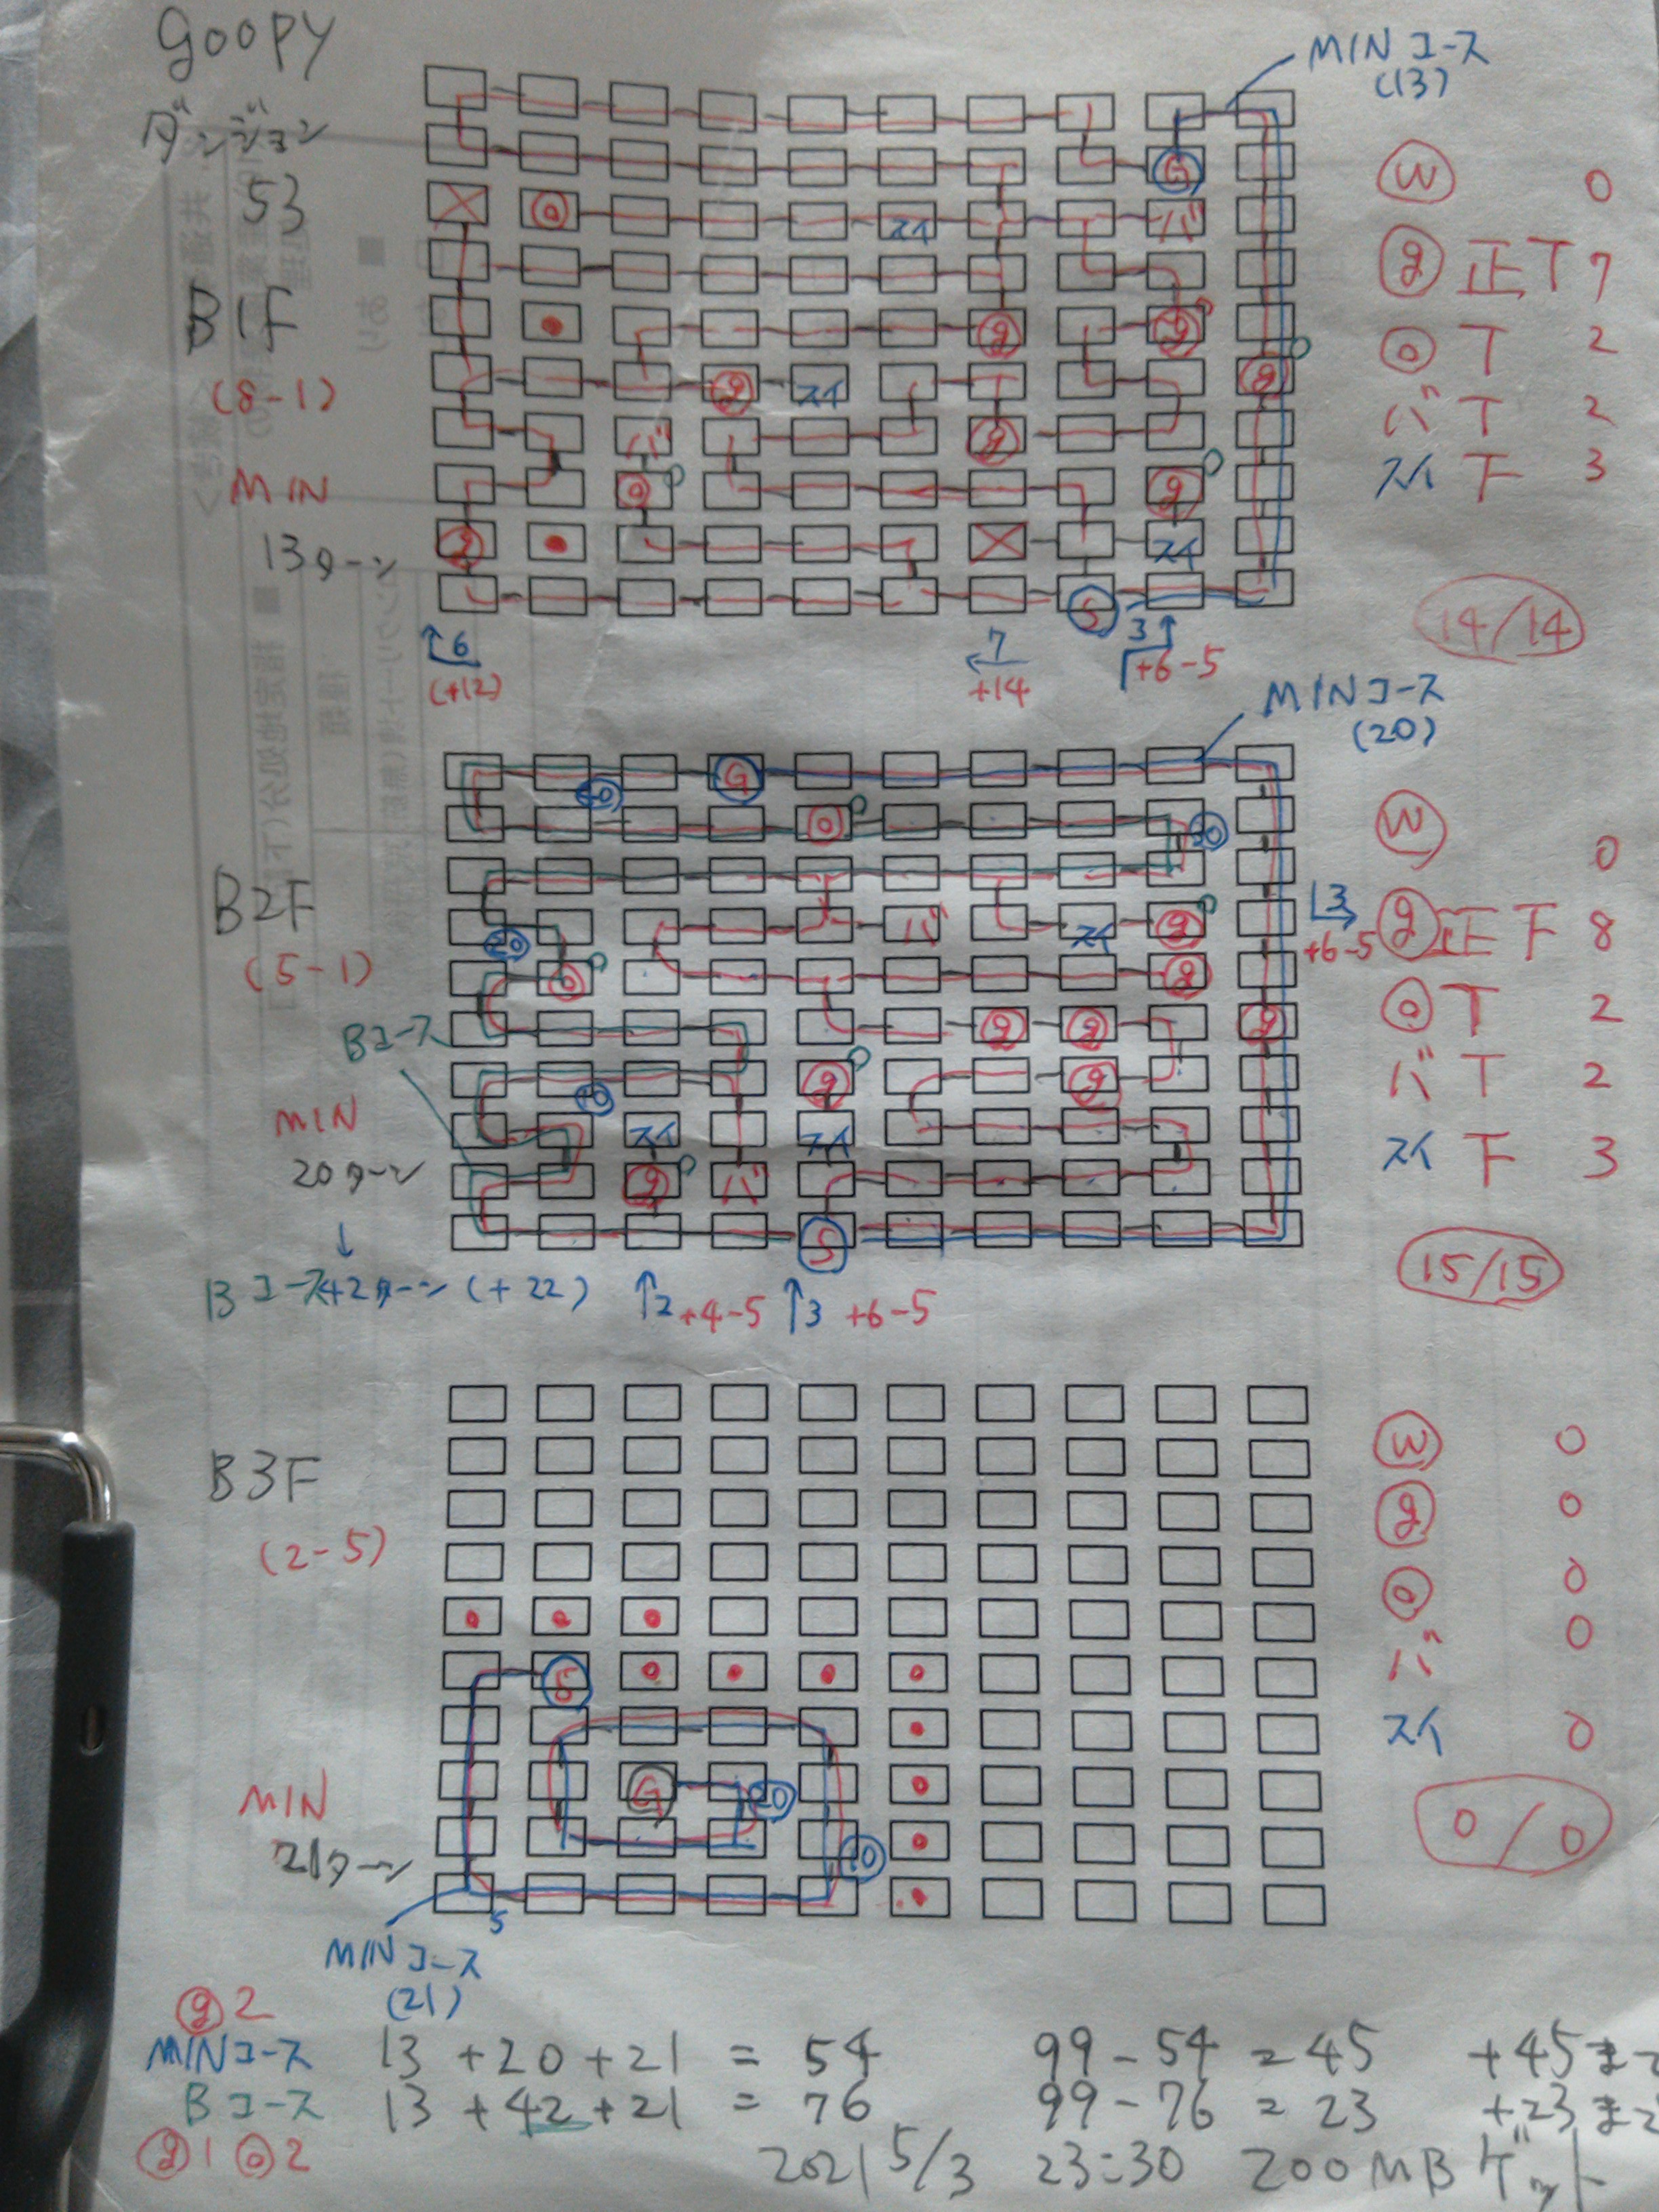 goopy
ダンジョン
53
B1F
(8-1)
MIN
13ターン
MINコース
(13)
G
スイ
バ
g
スイ
バ
スイ
S
6
(+12)
7
+14
3
+6-5
w 0
g 正T 7
o T 2
バ T 2
スイ 下 3
14/14
B2F
(5-1)
Bコース
MIN
20ターン
↓
Bコース42ターン (+22)
MINコース
(20)
G
40
o
30
バ
スイ
g
20
o
g
g
g
g
g
g
10
スイ
スイ
g
バ
S
↑2 +4-5
↑3 +6-5
3
+6-5
w 0
g 正下 8
o T 2
バ T 2
スイ 下 3
15/15
B3F
(2-5)
MIN
21ターン
S
G
20
10
5
MINコース
(21)
w 0
g 0
o 0
バ 0
スイ 0
0/0
g 2
MINコース 13+20+21 = 54 99-54=45 +45まで
Bコース 13+42+21 = 76 99-76=23 +23まで
g1 o2
2021 5/3 23:30 200MB ゲット